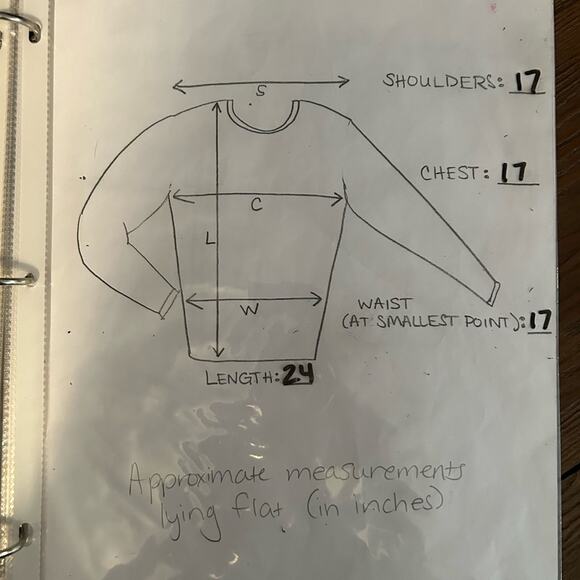 S
SHOULDERS: 17
CHEST: 17
C
L
W
WAIST
(AT SMALLEST POINT): 17
LENGTH: 24
Approximate measurements
lying flat (in inches)